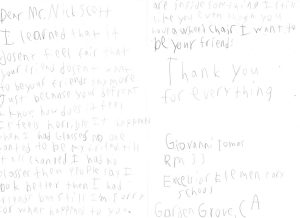 Dear Mr. Nick Scott
I learned that it
dosent feel fair that
your friend dosent want
to be your friend anymore
Just because your different
I know how does it feel
It feels horrible It happened
when I had glasses no one
wanted to be my friend till
it all changed I had no
glasses then people say I
look better then I had
friends but still I'm sorry
for what happened to you.
are inside
like you even when you
have a wheel chair I want to
be your friend!
Thank you
for everything
Giovanni
Rm 11
Excelsior Elementary
school
Garden Grove, CA